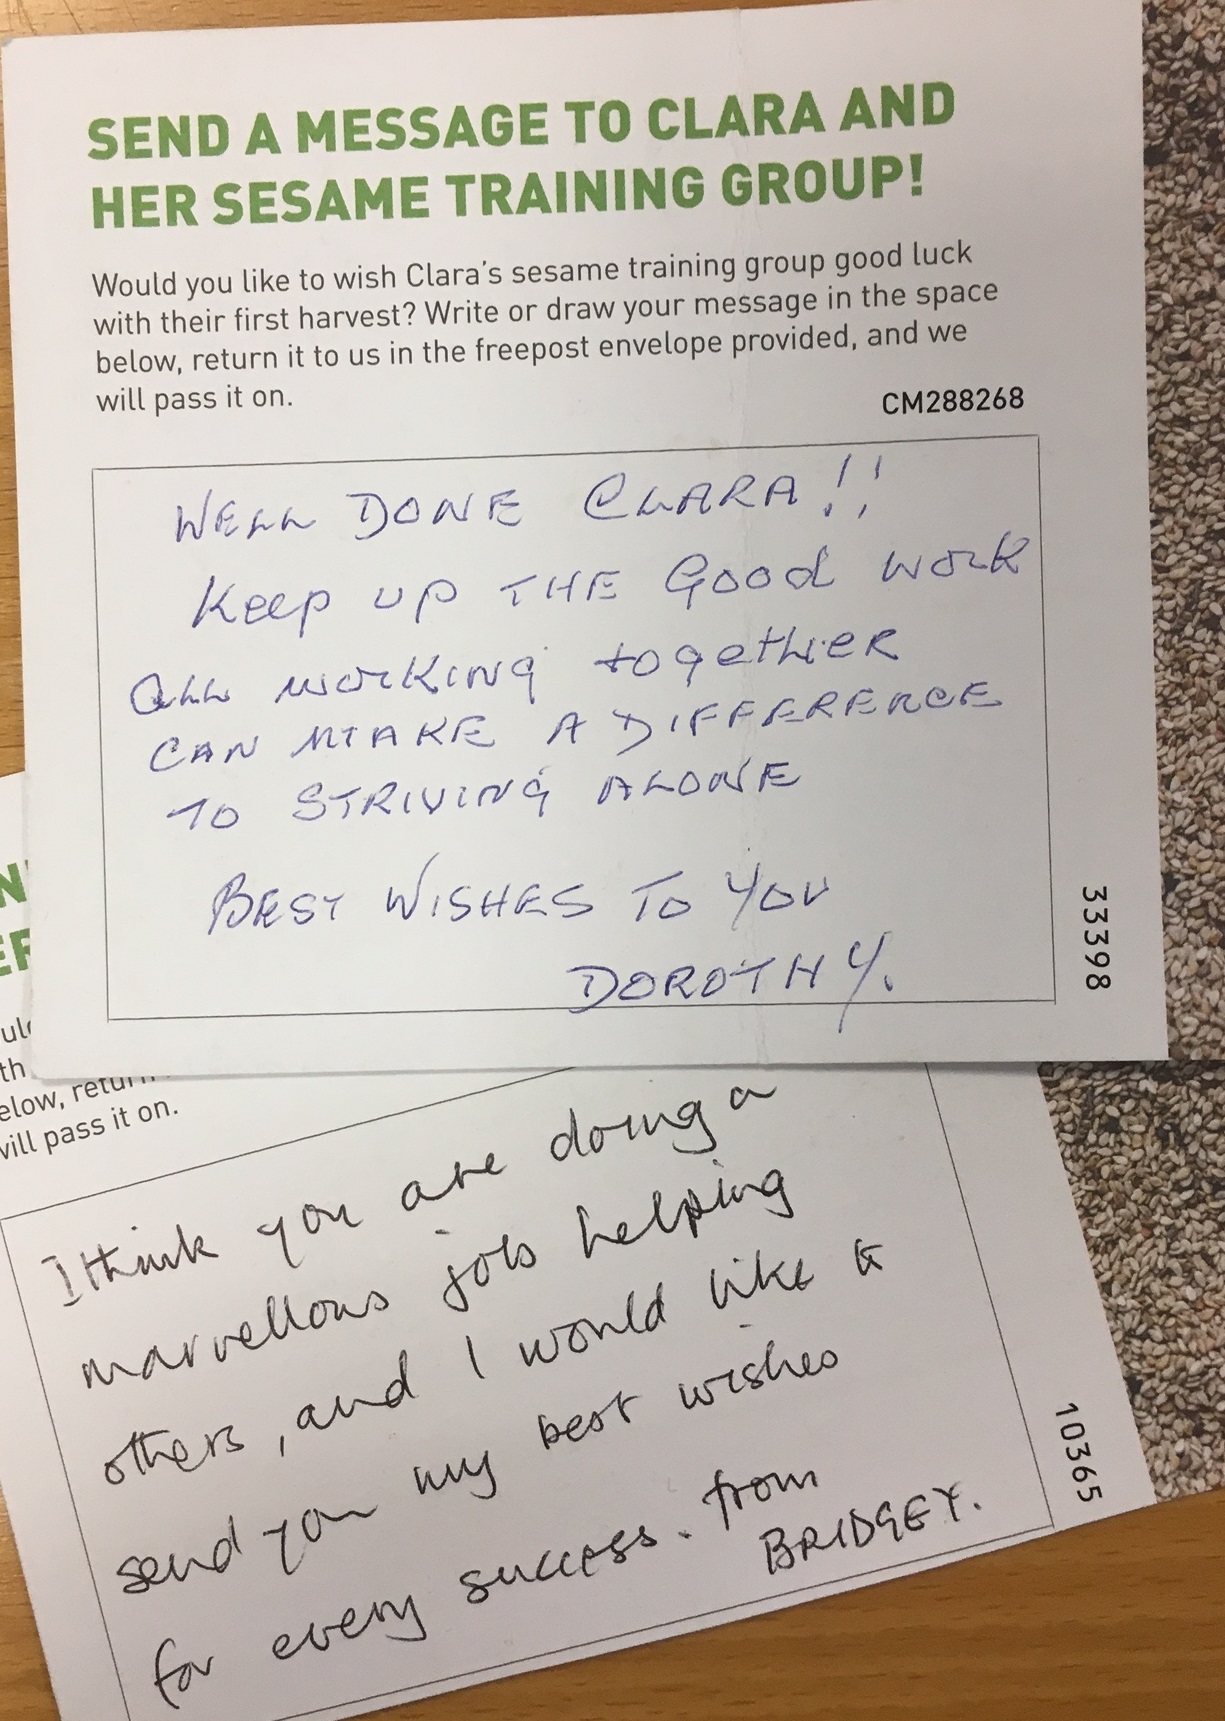 SEND A MESSAGE TO CLARA AND
HER SESAME TRAINING GROUP!
Would you like to wish Clara's sesame training group good luck
with their first harvest? Write or draw your message in the space
below, return it to us in the freepost envelope provided, and we
will pass it on.
CM288268
WELL DONE CLARA!!
Keep up THE Good WORK
ALL WORKING together
CAN MAKE A DIFFERENCE
TO STRIVING ALONE
BEST WISHES TO YOU
DOROTHY.
33398
below, return
will pass it on.
I think you are doing a
marvellous job helping
others, and I would like to
send you my best wishes
for every success. from
BRIDGEY.
10365